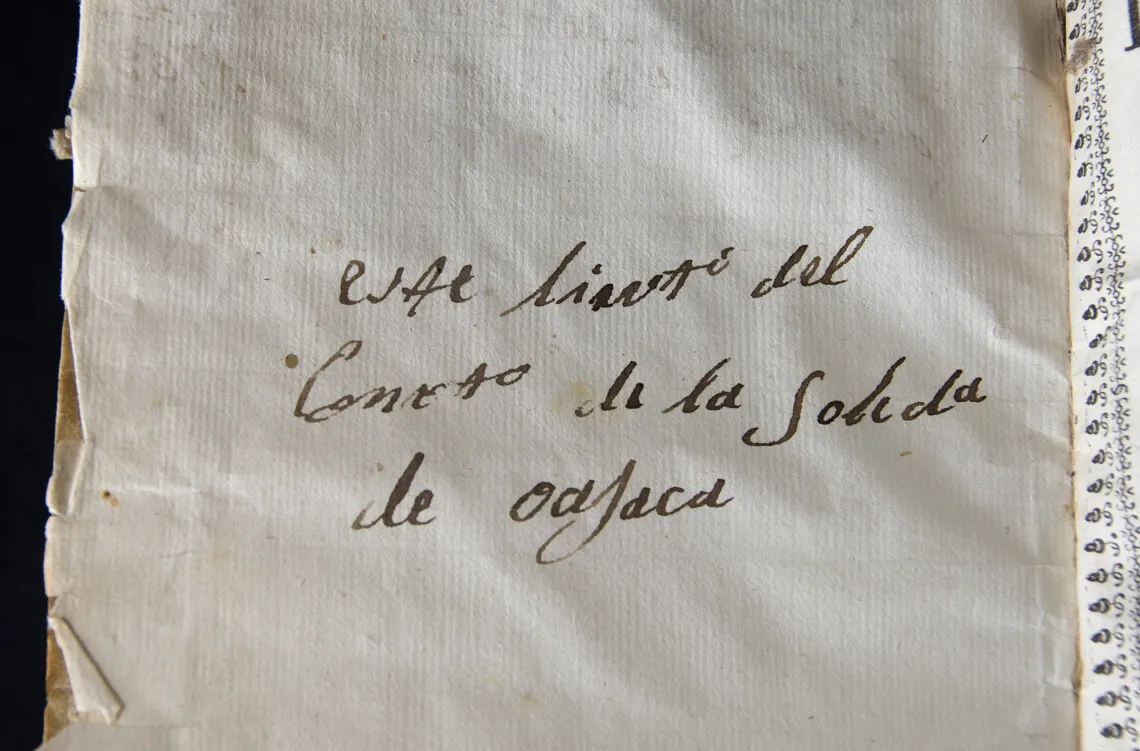 este livrto del
Conveto de la Soleda
de oajaca